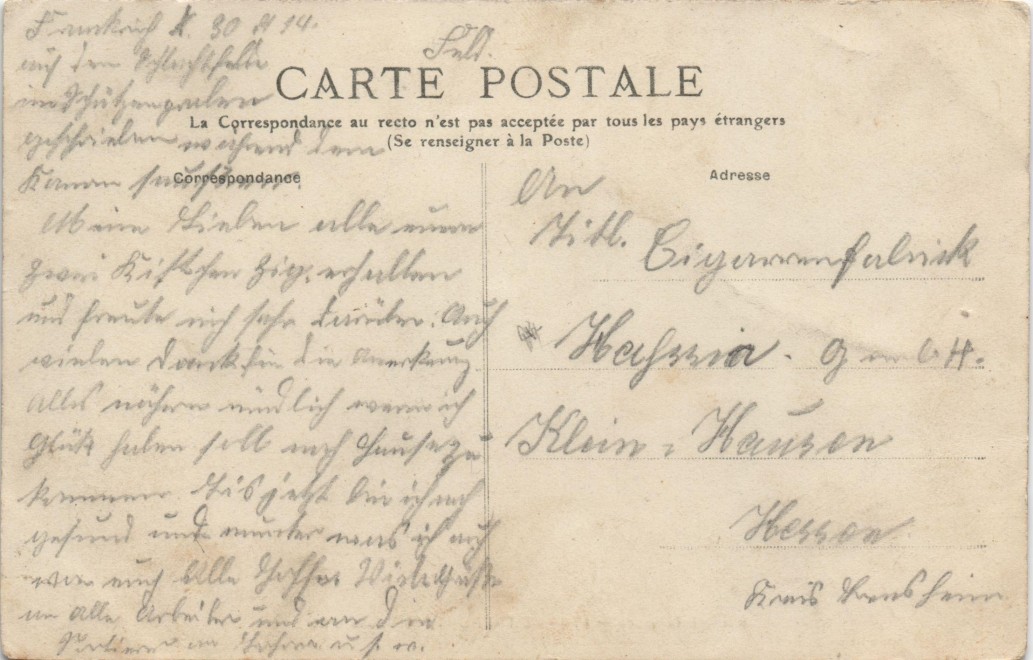 Frankreich 30 14.
auf dem Schlachtfelde
im Schützengraben
geschrieben während dem
Kanon
Feld.
CARTE POSTALE
La Correspondance au recto n'est pas acceptée par tous les pays étrangers
(Se renseigner à la Poste)
Correspondance
Meine Lieben alle
zwei Kistchen Zig. erhalten
und freute mich sehr darüber. Auch
vielen Dank für die
Alles nähere mündlich wenn ich
Glück haben soll nach Hause zu
kommen. Bis jetzt bin ich noch
gesund und munter was ich auch
von euch Alle hoffe. Viele Grüße
an Alle Arbeiter und an die
an u. s. w.
Adresse
An
Titl. Cigarrenfabrick
Hassia. G m b H.
Klein-Hausen
Hessen
Kreis Bensheim